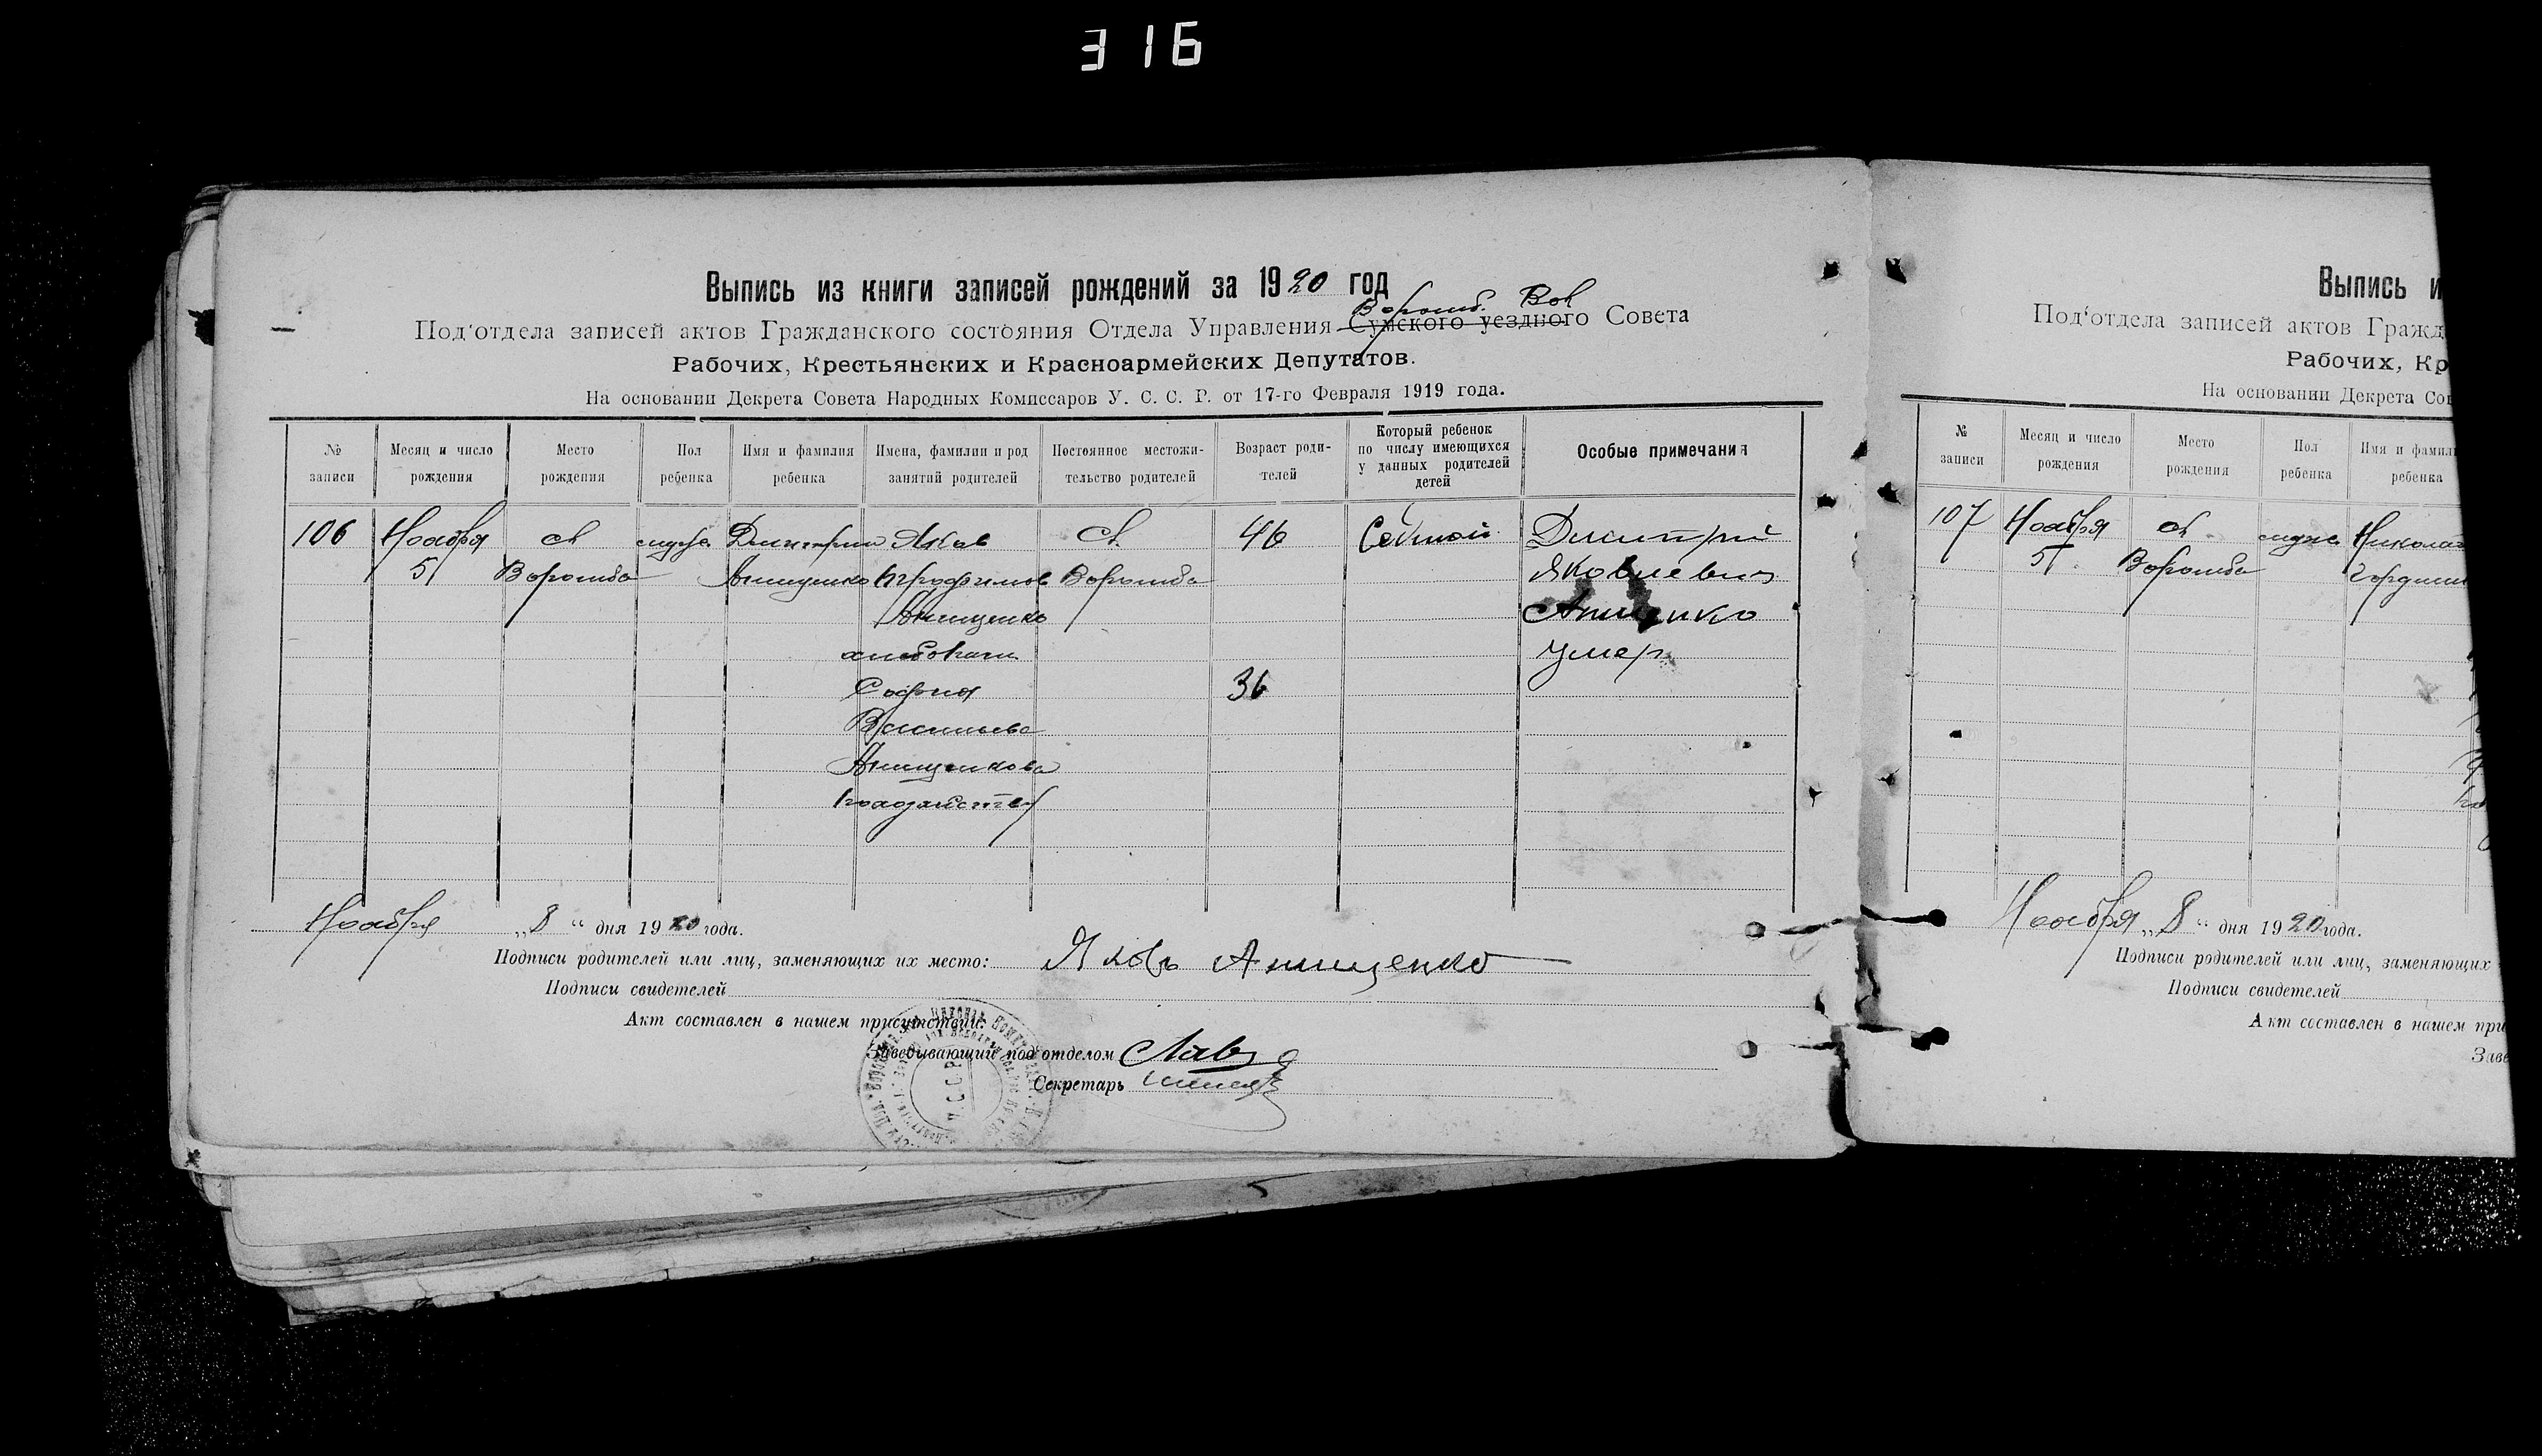 316
Выпись из книги записей рождений за 1920 год
Воромб. Вол
Под'отдела записей актов Гражданского состояния Отдела Управления Сумского уездного Совета
Рабочих, Крестьянских и Красноармейских Депутатов.
На основании Декрета Совета Народных Комиссаров У. С. С. Р. от 17-го Февраля 1919 года.
№ записи
Месяц и число рождения
Место рождения
Пол ребенка
Имя и фамилия ребенка
Имена, фамилии и род занятий родителей
Постоянное местожительство родителей
Возраст родителей
Который ребенок по числу имеющихся у данных родителей детей
Особые примечания
106 Ноября сл мужс Дмитрий Яков Сл. 46 Седмой Дмитрий
5 Ворожба Анищенко Трофимов Ворожба Яковлевич
Анищенко Анищенко
хлебопаш Умер
София 36
Васильева
Анищенкова
Ноября „8“ дня 1920 года.
Подписи родителей или лиц, заменяющих их место: Яковъ Анищенко
Подписи свидетелей
Акт составлен в нашем присутствии:
Заведывающий под'отделом
Секретарь
Выпись и
Под'отдела записей актов Гражд
Рабочих, Кр
На основании Декрета Сов
№ записи
Месяц и число рождения
Место рождения
Пол ребенка
Имя и фамили ребенка
107 Ноября сл мужс Николай
5 Ворожба
Ноября „8“ дня 1920 года.
Подписи родителей или лиц, заменяющих
Подписи свидетелей
Акт составлен в нашем при
Заве